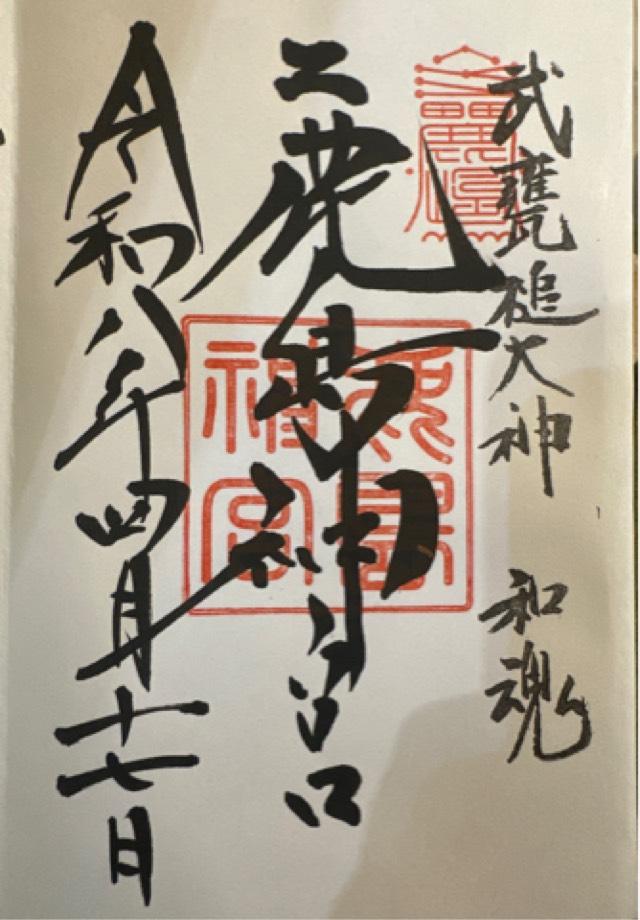 武甕槌大神 和魂
鹿島神宮
鹿島神宮
令和八年四月十七日